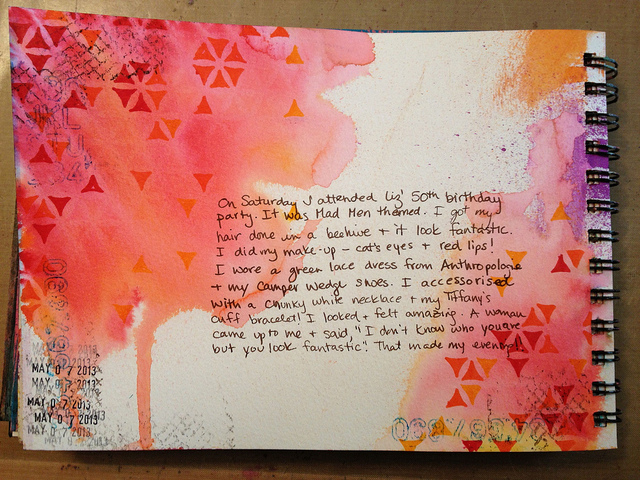 On Saturday I attended Liz' 50th birthday
party. It was Mad Men themed. I got my
hair done in a beehive + it look fantastic.
I did my make-up - cat's eyes + red lips!
I wore a green lace dress from Anthropologie
+ my Camper wedge shoes. I accessorised
with a chunky white necklace + my Tiffany's
cuff bracelet! I looked + felt amazing. A woman
came up to me + said, "I don't know who you are
but you look fantastic". That made my evening!!
MAY 07 2013
MAY 07 2013
MAY 07 2013
MAY 07 2013
MAY 07 2013